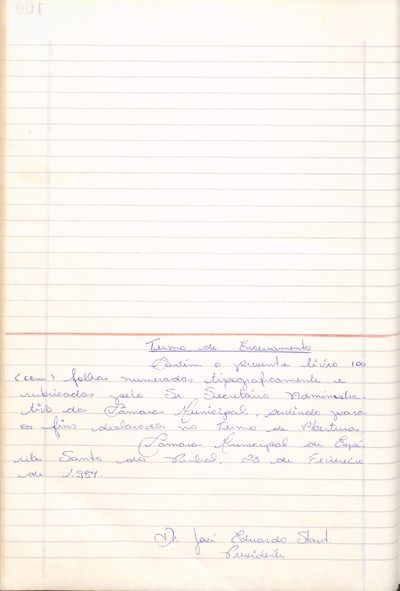 Termo de Encerramento
Contém o presente livro 100
(cem) folhas numeradas tipograficamente e
rubricadas pelo Sr. Secretário Administra-
tivo da Câmara Municipal, servindo para
os fins declarados no Termo de Abertura.
Câmara Municipal de Espí-
rito Santo do Pinhal, 23 de Fevereiro
de 1.984.
Dr. José Eduardo
Presidente